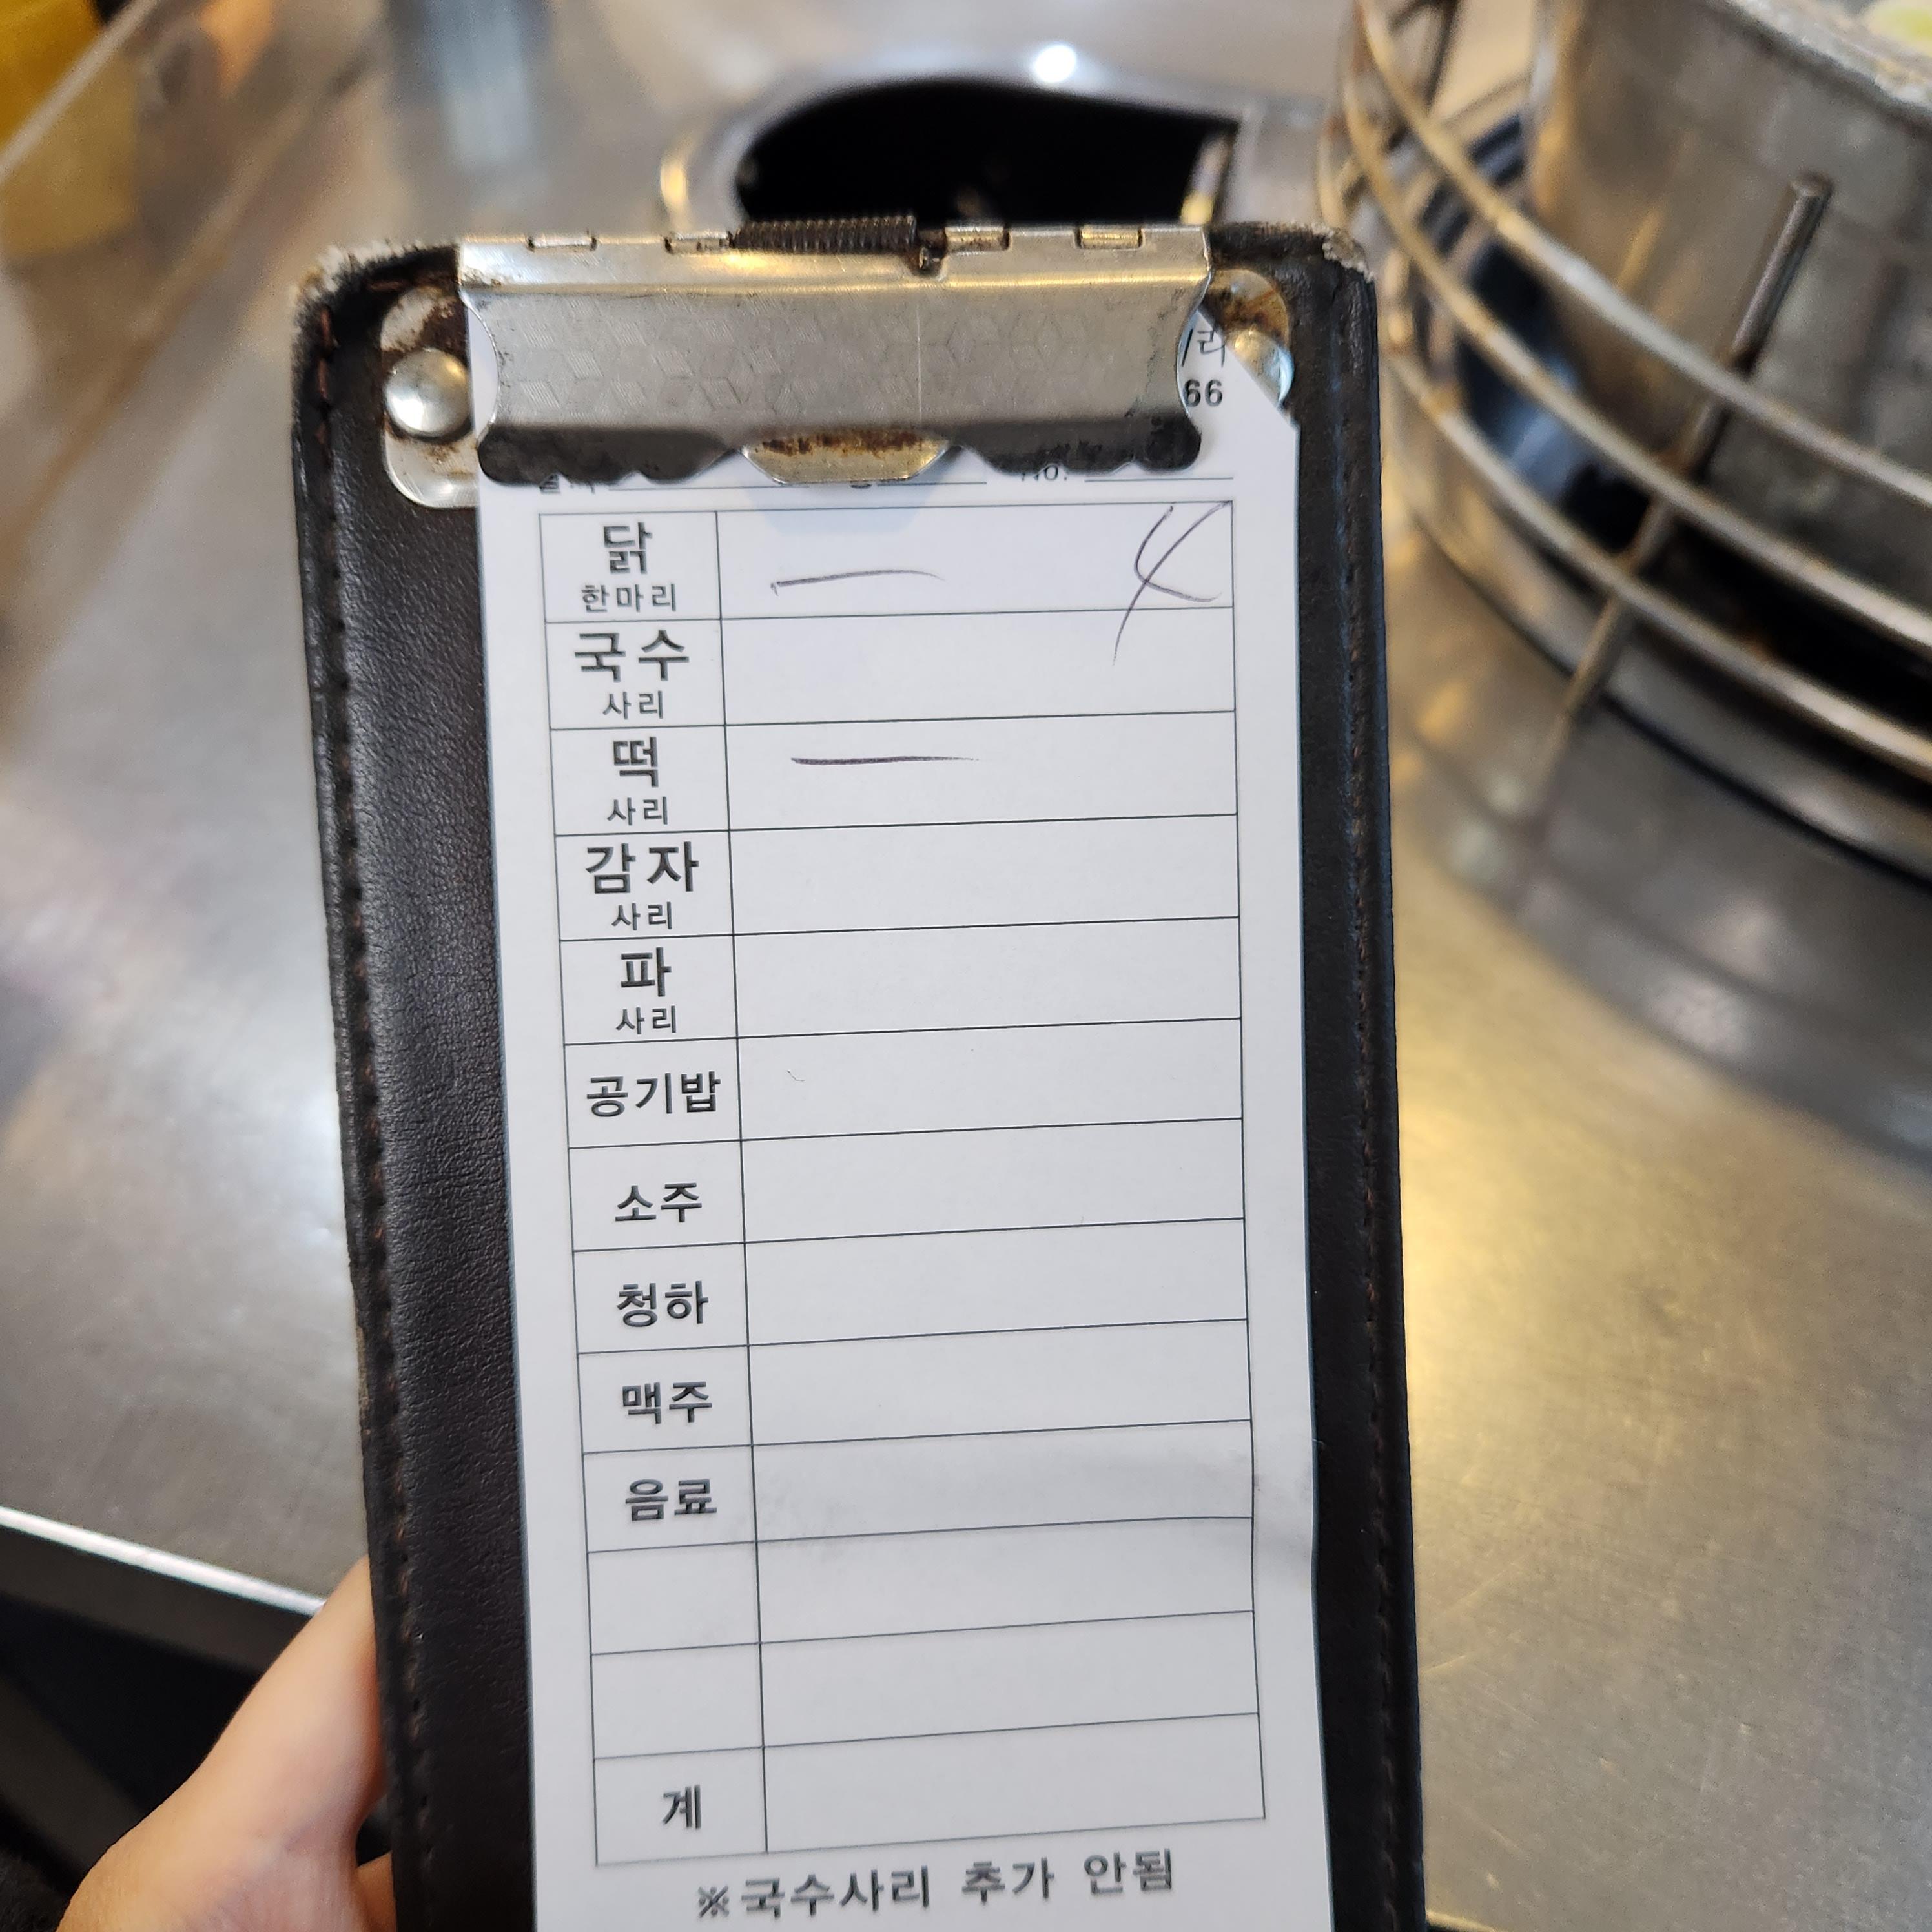 /리
66
No.
닭 한마리 — 4
국수 사리
떡 사리 —
감자 사리
파 사리
공기밥
소주
청하
맥주
음료
계
※국수사리 추가 안됨